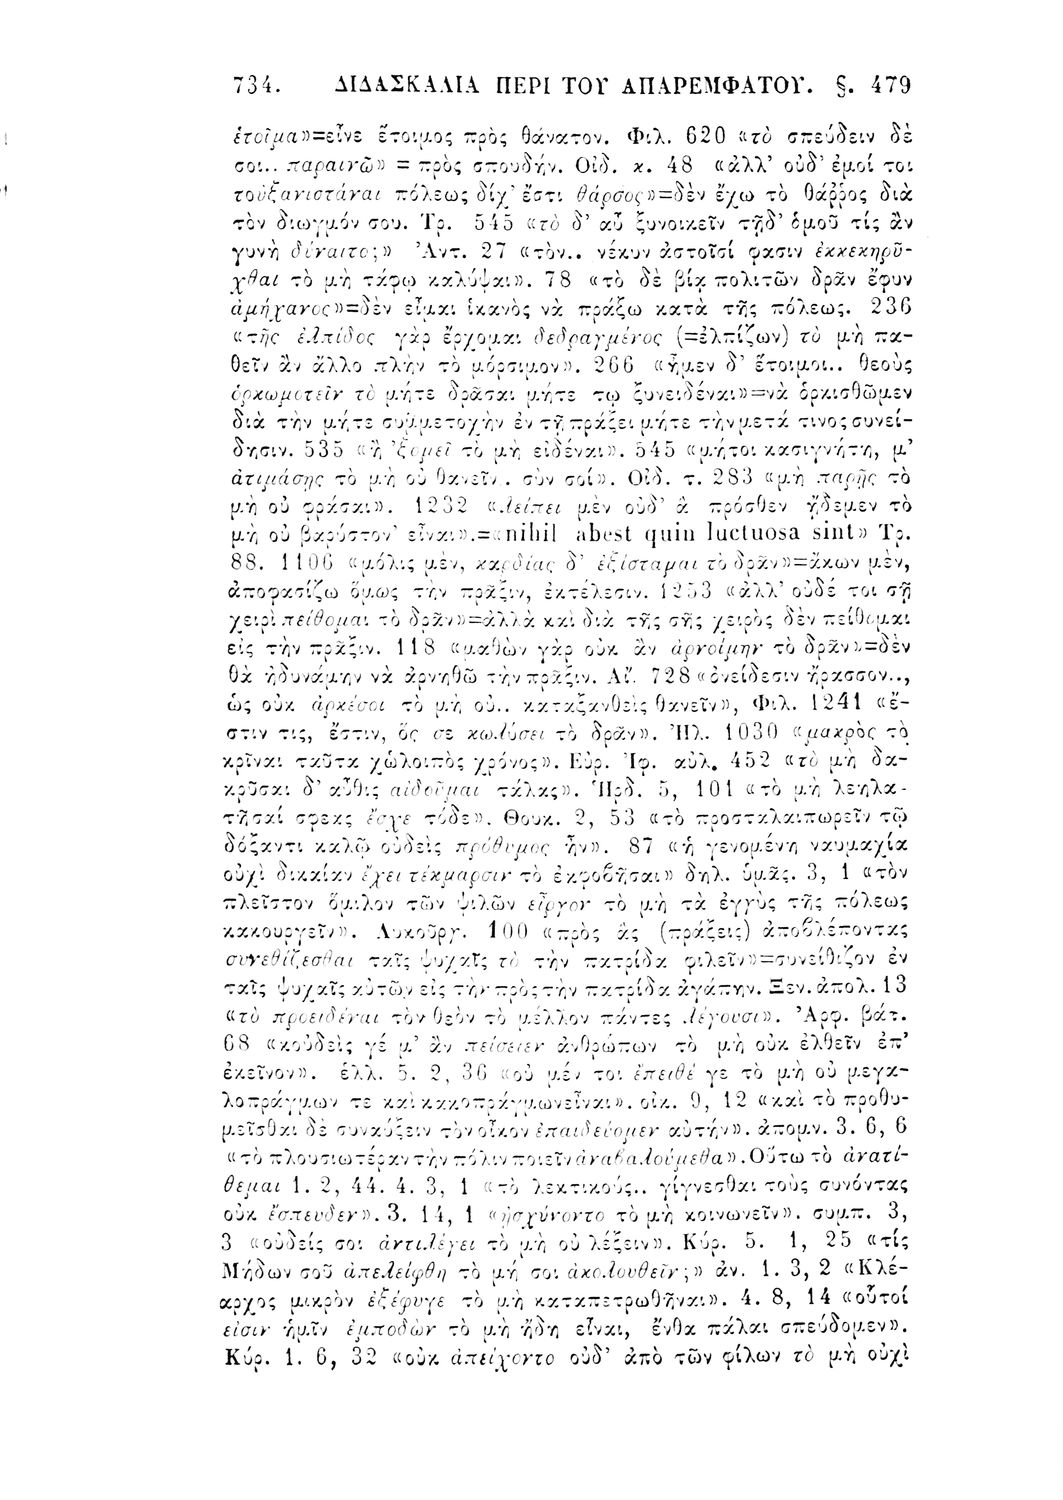 734. ΔΙΔΑΣΚΑΛΙΑ ΠΕΡΙ ΤΟΥ ΑΠΑΡΕΜΦΑΤΟΥ. §. 479
ἑτοῖμα»=εἶνε ἕτοιμος πρὸς θάνατον. Φιλ. 620 «τὸ σπεύδειν δὲ
σοι.. παραινῶ» = πρὸς σπουδήν. Οἰδ. κ. 48 «ἀλλ’ οὐδ’ ἐμοί τοι
τοὐξανιστάναι πόλεως δίχ’ ἔστι θάρσος»=δὲν ἔχω τὸ θάῤῥος διὰ
τὸν διωγμόν σου. Τρ. 545 «τὸ δ’ αὖ ξυνοικεῖν τῇδ’ ὁμοῦ τίς ἂν
γυνὴ δύναιτο;» Ἀντ. 27 «τὸν.. νέκυν ἀστοῖσί φασιν ἐκκεκηρῦ-
χθαι τὸ μὴ τάφῳ καλύψαι». 78 «τὸ δὲ βίᾳ πολιτῶν δρᾶν ἔφυν
ἀμήχανος»=δὲν εἶμαι ἱκανὸς νὰ πράξω κατὰ τῆς πόλεως. 236
«τῆς ἐλπίδος γὰρ ἔρχομαι δεδραγμένος (=ἐλπίζων) τὸ μὴ πα-
θεῖν ἂν ἄλλο πλὴν τὸ μόρσιμον». 266 «ἦμεν δ’ ἕτοιμοι.. θεοὺς
ὁρκωμοτεῖν τὸ μήτε δρᾶσαι μήτε τῳ ξυνειδέναι»=νὰ ὁρκισθῶμεν
διὰ τὴν μήτε συμμετοχὴν ἐν τῇ πράξει μήτε τὴν μετά τινος συνεί-
δησιν. 535 «ἢ ’ξομεῖ τὸ μὴ εἰδέναι». 545 «μήτοι κασιγνήτη, μ’
ἀτιμάσῃς τὸ μὴ οὐ θανεῖν.. σὺν σοί». Οἰδ. τ. 283 «μὴ παρῇς τὸ
μὴ οὐ φράσαι». 1232 «λείπει μὲν οὐδ’ ἃ πρόσθεν ᾔδεμεν τὸ
μὴ οὐ βαρύστον’ εἶναι».=«nihil abest quin luctuosa sint» Τρ.
88. 1106 «μόλις μὲν, καρδίας δ’ ἐξίσταμαι τὸ δρᾶν»=ἄκων μὲν,
ἀποφασίζω ὅμως τὴν πρᾶξιν, ἐκτέλεσιν. 1253 «ἀλλ’ οὐδέ τοι σῇ
χειρὶ πείθομαι τὸ δρᾶν»=ἀλλὰ καὶ διὰ τῆς σῆς χειρὸς δὲν πείθομαι
εἰς τὴν πρᾶξιν. 118 «μαθὼν γὰρ οὐκ ἂν ἀρνοίμην τὸ δρᾶν»=δὲν
θὰ ἠδυνάμην νὰ ἀρνηθῶ τὴν πρᾶξιν. Αἴ. 728 «ὀνείδεσιν ἤρασσον..,
ὡς οὐκ ἀρκέσοι τὸ μὴ οὐ.. καταξανθεὶς θανεῖν», Φιλ. 1241 «ἔ-
στιν τις, ἔστιν, ὅς σε κωλύσει τὸ δρᾶν». Ἠλ. 1030 «μακρὸς τὸ
κρῖναι ταῦτα χὠλοιπὸς χρόνος». Εὐρ. Ἰφ. αὐλ. 452 «τὸ μὴ δα-
κρῦσαι δ’ αὖθις αἰδοῦμαι τάλας». Ἡρδ. 5, 101 «τὸ μὴ λεηλα-
τῆσαί σφεας ἔσχε τόδε». Θουκ. 2, 53 «τὸ προσταλαιπωρεῖν τῷ
δόξαντι καλῷ οὐδεὶς πρόθυμος ἦν». 87 «ἡ γενομένη ναυμαχία
οὐχὶ δικαίαν ἔχει τέκμαρσιν τὸ ἐκφοβῆσαι» δηλ. ὑμᾶς. 3, 1 «τὸν
πλεῖστον ὅμιλον τῶν ψιλῶν εἶργον τὸ μὴ τὰ ἐγγὺς τῆς πόλεως
κακουργεῖν». Λυκοῦργ. 100 «πρὸς ἃς (πράξεις) ἀποβλέποντας
συνεθίζεσθαι ταῖς ψυχαῖς τὸ τὴν πατρίδα φιλεῖν»=συνείθιζον ἐν
ταῖς ψυχαῖς αὐτῶν εἰς τὴν πρὸς τὴν πατρίδα ἀγάπην. Ξεν. ἀπολ. 13
«τὸ προειδέναι τὸν θεὸν τὸ μέλλον πάντες λέγουσι». Ἀρφ. βάτ.
68 «κοὐδεὶς γέ μ’ ἂν πείσειεν ἀνθρώπων τὸ μὴ οὐκ ἐλθεῖν ἐπ’
ἐκεῖνον». ἑλλ. 5. 2, 36 «οὐ μέν τοι ἔπειθέ γε τὸ μὴ οὐ μεγα-
λοπράγμων τε καὶ κακοπράγμων εἶναι». οἰκ. 9, 12 «καὶ τὸ προθυ-
μεῖσθαι δὲ συναύξειν τὸν οἶκον ἐπαιδεύομεν αὐτήν». ἀπομν. 3. 6, 6
«τὸ πλουσιωτέραν τὴν πόλιν ποιεῖν ἀναβαλούμεθα». Οὕτω τὸ ἀνατί-
θεμαι 1. 2, 44. 4. 3, 1 «τὸ λεκτικούς.. γίγνεσθαι τοὺς συνόντας
οὐκ ἔσπευδεν». 3. 14, 1 «ᾐσχύνοντο τὸ μὴ κοινωνεῖν». συμπ. 3,
3 «οὐδείς σοι ἀντιλέγει τὸ μὴ οὐ λέξειν». Κύρ. 5. 1, 25 «τίς
Μήδων σοῦ ἀπελείφθη τὸ μή σοι ἀκολουθεῖν;» ἀν. 1. 3, 2 «Κλέ-
αρχος μικρὸν ἐξέφυγε τὸ μὴ καταπετρωθῆναι». 4. 8, 14 «οὗτοί
εἰσιν ἡμῖν ἐμποδὼν τὸ μὴ ἤδη εἶναι, ἔνθα πάλαι σπεύδομεν».
Κύρ. 1. 6, 32 «οὐκ ἀπείχοντο οὐδ’ ἀπὸ τῶν φίλων τὸ μὴ οὐχὶ